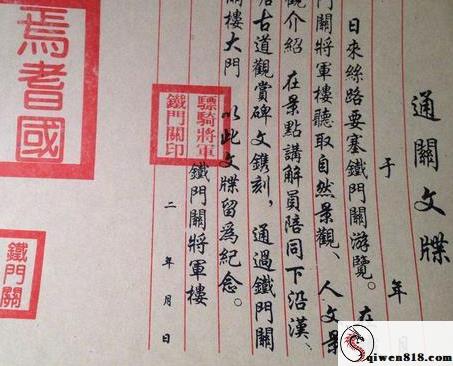 通關文牒
于 年 月
日來絲路要塞鐵門關游覽。在
門關將軍樓聽取自然景觀、人文景
觀介紹 在景點講解員陪同下沿漢、
唐古道觀賞碑文鐫刻，通過鐵門關
關樓大門 以此文牒留為紀念。
鐵門關將軍樓
二 年 月 日
驃騎將軍
鐵門關印
焉耆國
鐵門關
qiwen818.com